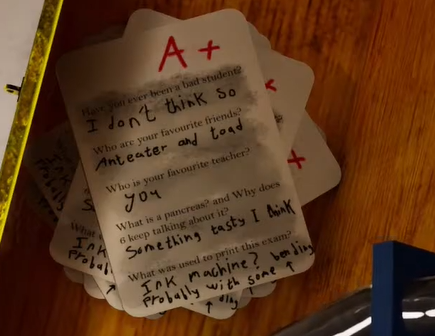 A+
Have you ever been a bad student?
I don't think so
Who are your favourite friends?
Anteater and toad
Who is your favourite teacher?
you
What is a pancreas? and Why does
6 keep talking about it?
Something tasty I think
What was used to print this exam?
Ink machine? bending
Probally with some ↑
Ink
Probally
+